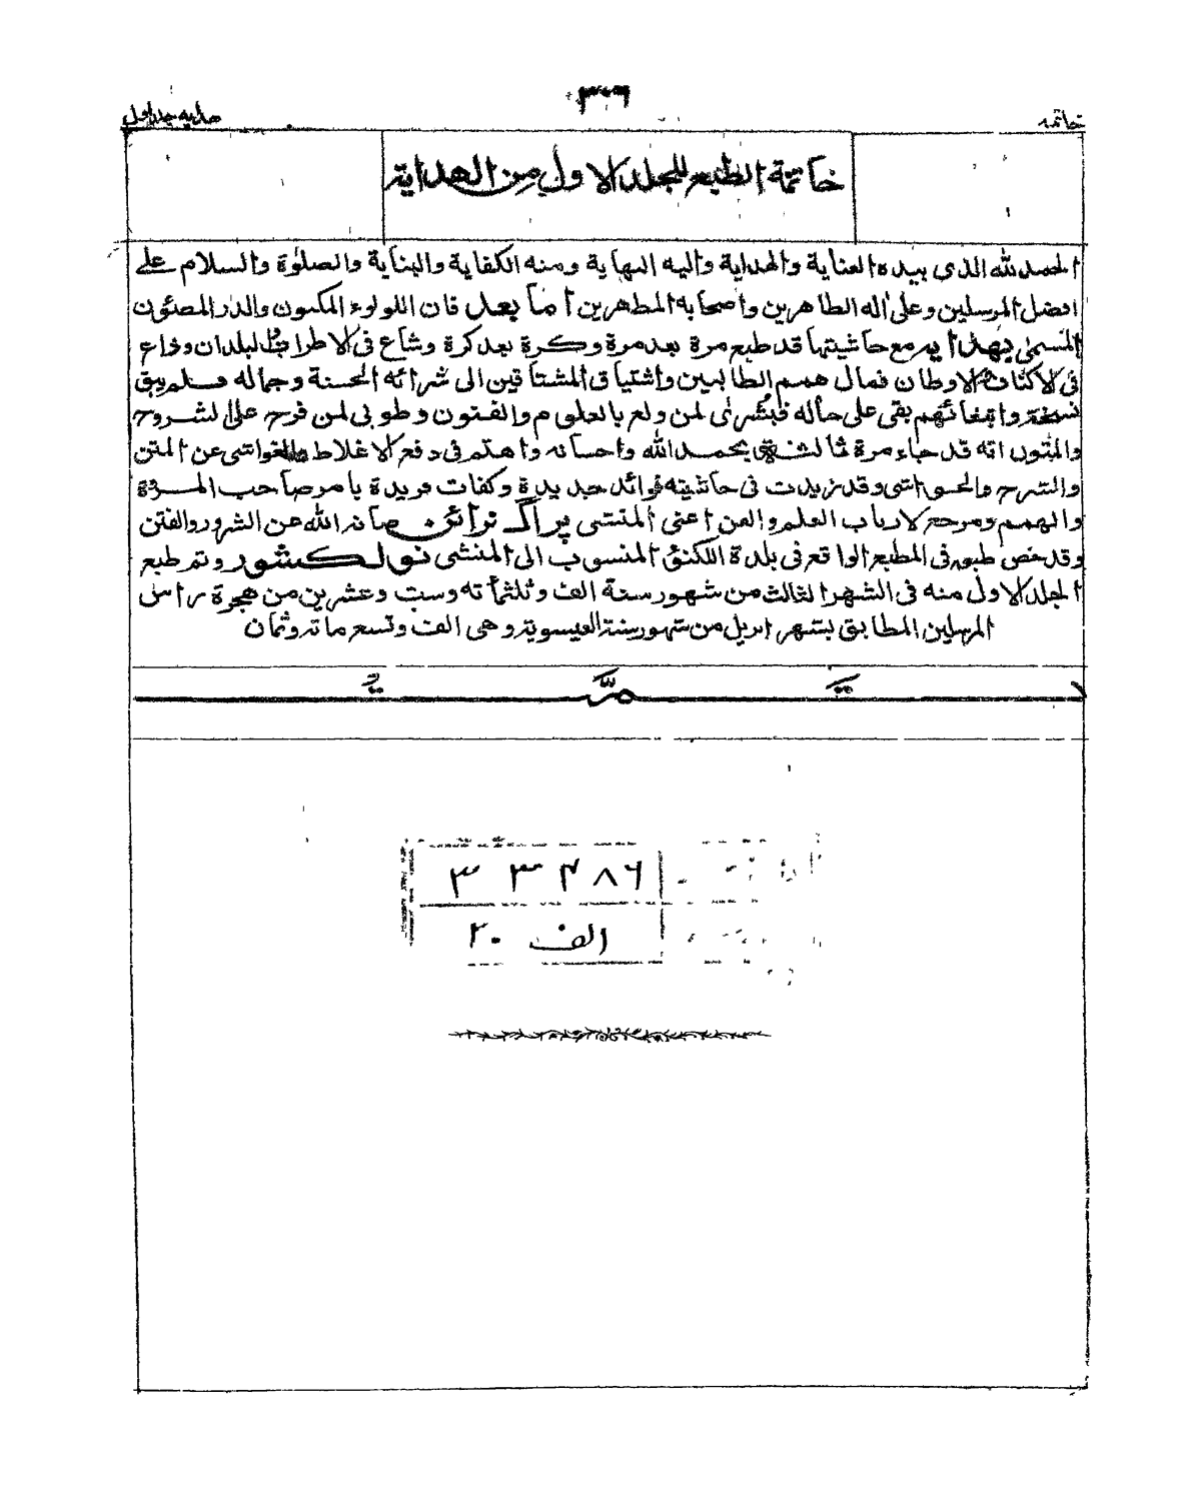 خاتمه
هدایه جلد اول
خاتمة الطبع للمجلد الاول من الهداية
الحمد لله الذی بیده العناية والهداية واليه النهاية ومنه الكفاية والبناية والصلوٰة والسلام علے
افضل المرسلين وعلیٰ اله الطاهرين واصحابه المطهرين اما بعد فان اللولوء المكنون والدر المصئون
المسمیٰ بهدايه مع حاشيتها قد طبع مرة بعد مرة وكرة بعد كرة وشاع فی الاطراف البلدان وذاع
فی الاكناف والاوطان فمال همم الطالبين واشتياق المشتاقين الی شرائه الحسنة وجماله فلم يبق
نسخة وابتغائهم بقی علی حاله فبُشریٰ لمن ولع بالعلوم والفنون وطوبی لمن فرح علی الشروح
والمتون انه قد جاء مرة ثالثة بحمد الله واحسانه واهتم فی دفع الاغلاط والغواشی عن المتن
والشرح والحواشی وقد زيدت فی حاشيته فوائد جديدة ونكات فريدة بامر صاحب المروة
والهمم ومرجع لارباب العلم والفن اعنی المنشی پراگ نرائن صانه الله عن الشرور والفتن
وقد خص طبعه فی المطبع الواقع فی بلدة اللكنؤ المنسوب الی المنشی نولكشور وتم طبع
المجلد الاول منه فی الشهر الثالث من شهور سنة الف وثلثمأته وست وعشرين من هجرة راس
المرسلين المطابق بشهر اپريل من شهور سنة العيسوية وهی الف وتسعمائة وثمان
تمّت
۳۳۴۸۶
الف ۲۰